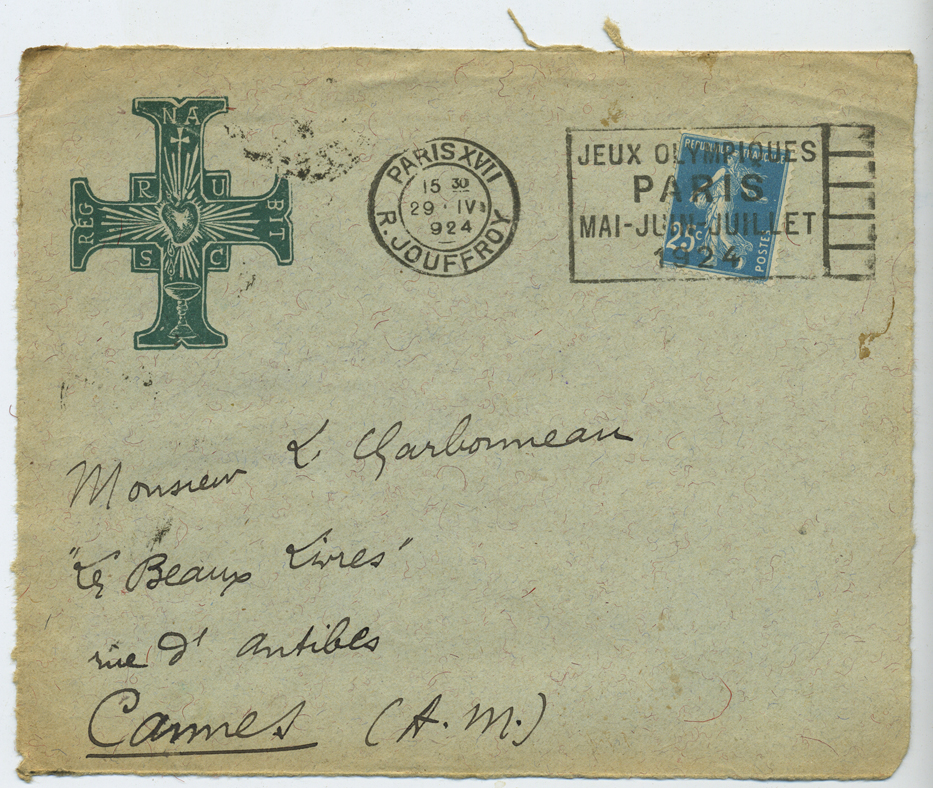 NA
R U
REG BIT
S C
PARIS XVII
15 30
29 · IV
924
R. JOUFFROY
JEUX OLYMPIQUES
PARIS
MAI-JUIN-JUILLET
1924
REPUBLIQUE FRANCAISE
25c
POSTES
Monsieur L Charbonneau
"Les Beaux Livres"
rue d' Antibes
Cannes (A. M.)